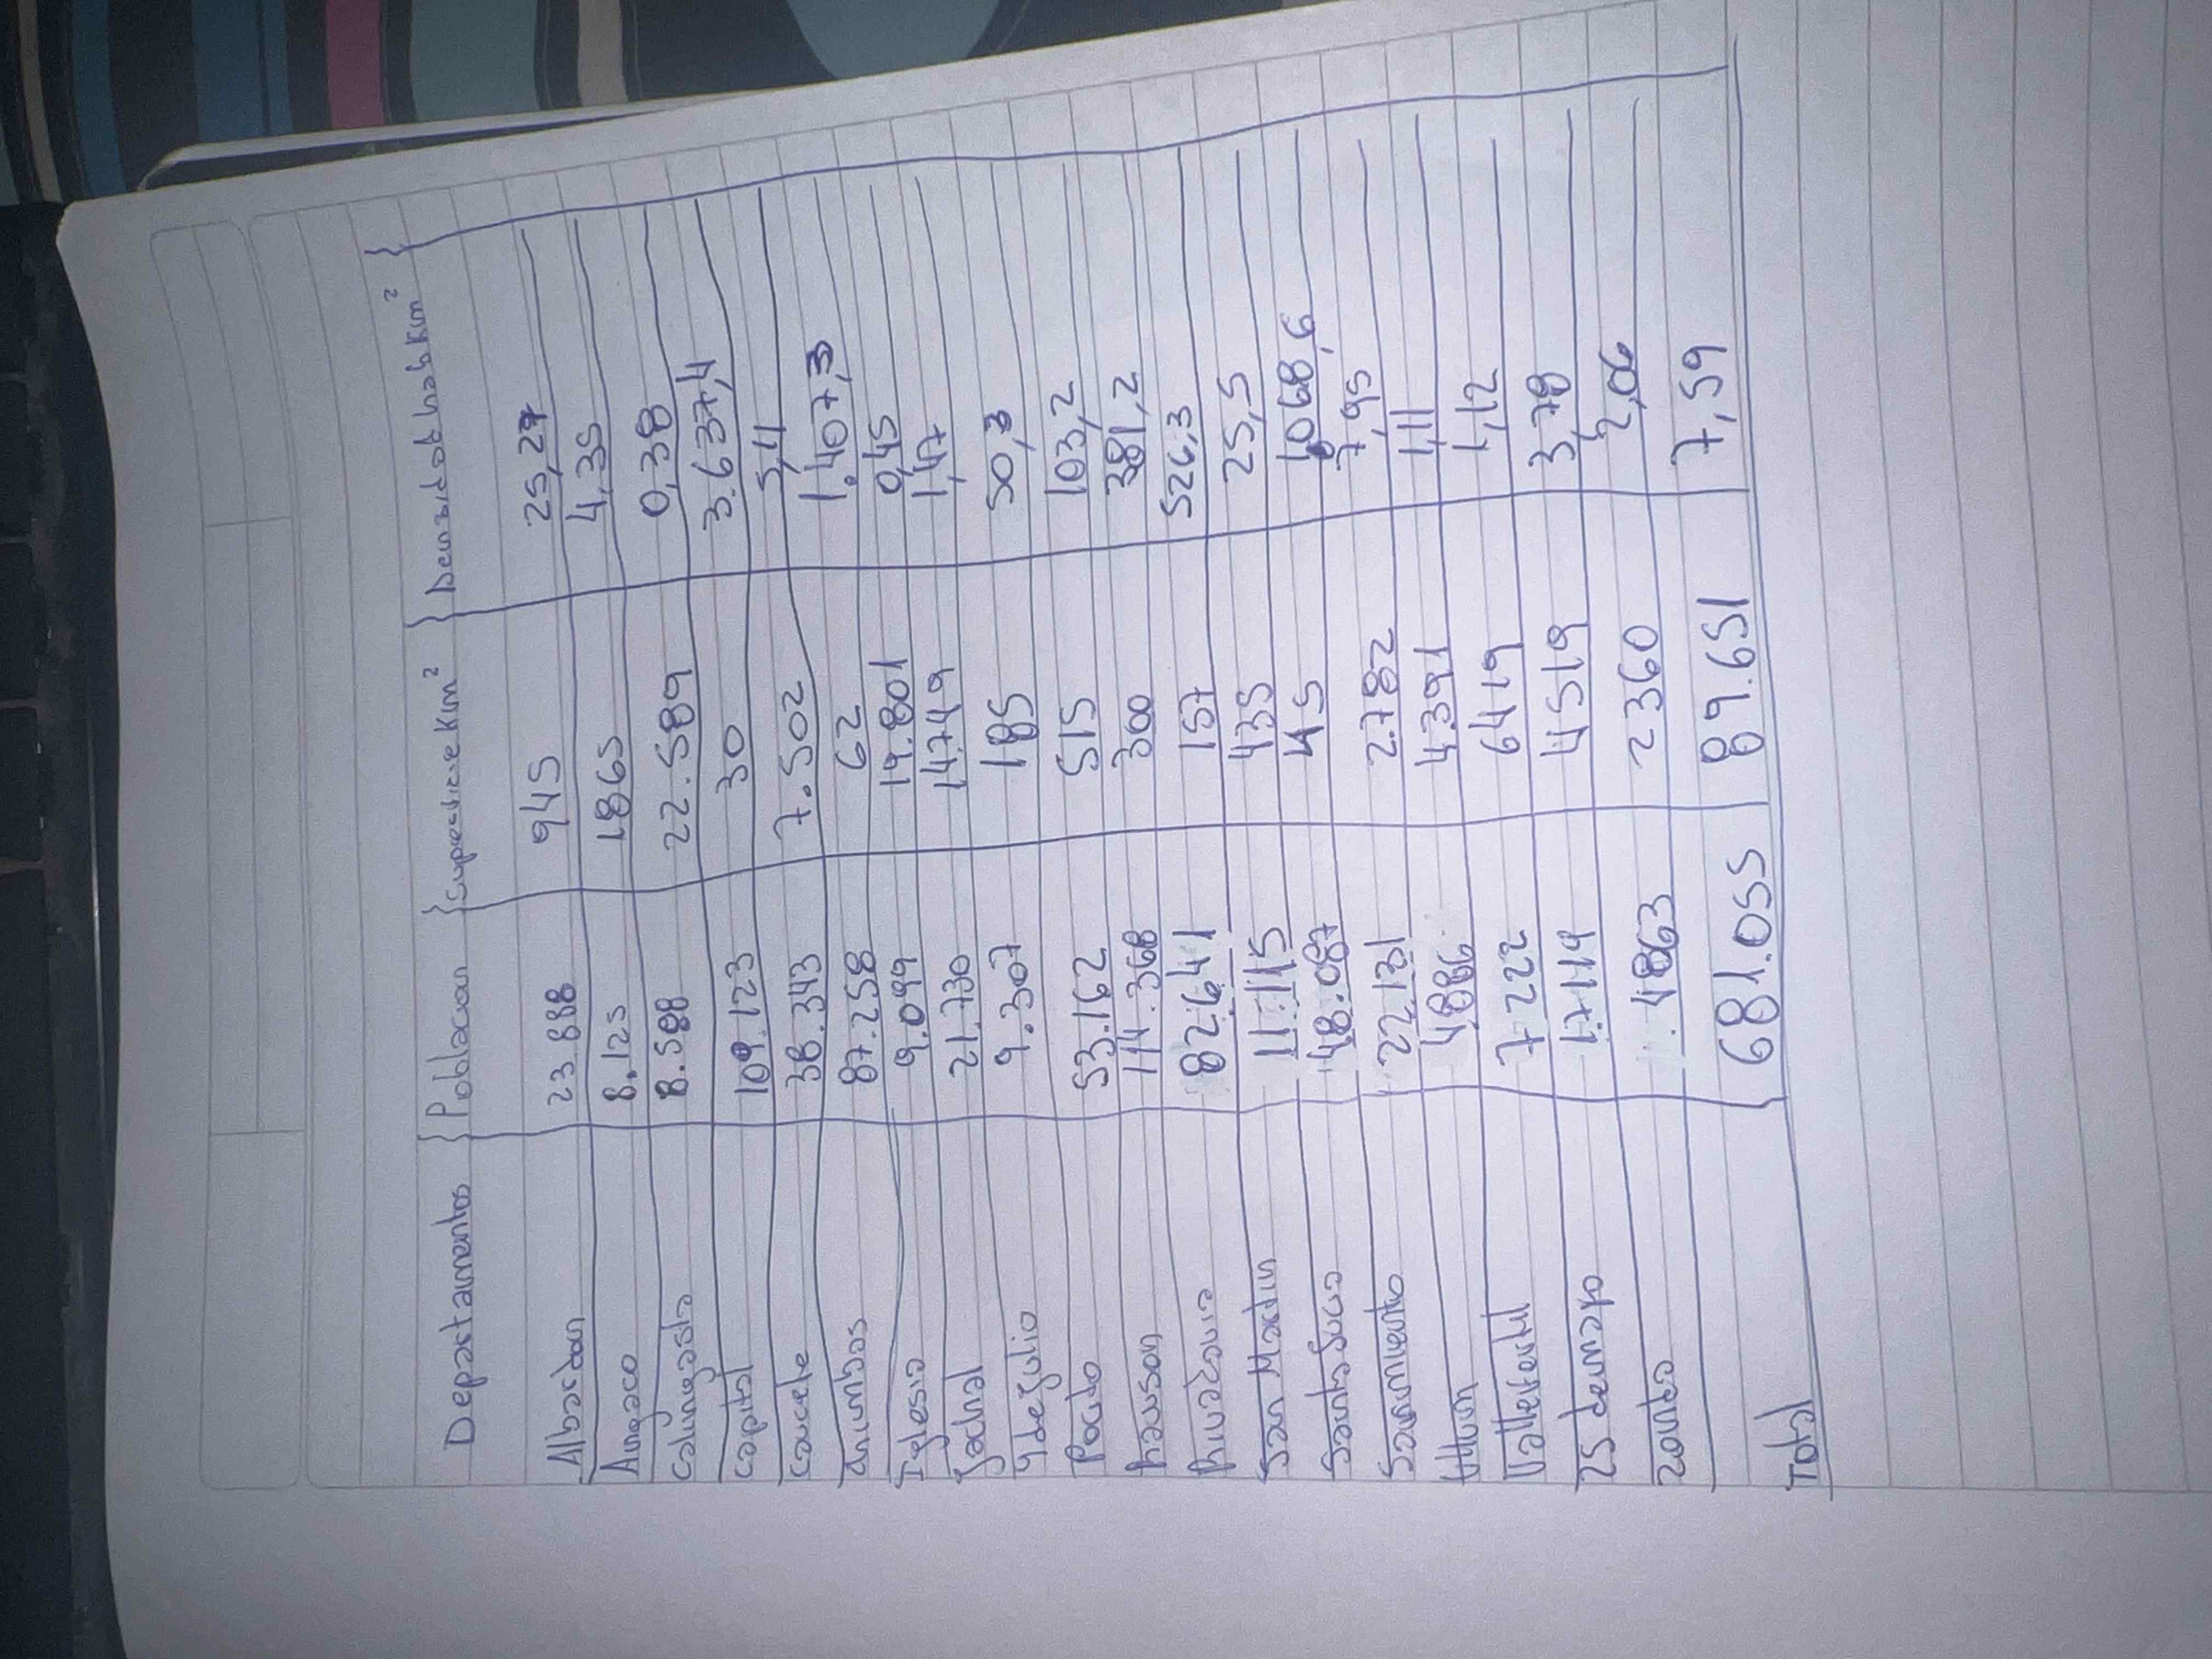 Departamentos } Poblacion } Superficie Km² } Densidad poh y km² }
Albardon 23.888 945 25,27
Angaco 8.125 1865 4,35
Calingasta 8.588 22.589 0,38
Capital 109.123 30 3.637,4
Caucete 38.343 7.502 5,11
Chimbas 87.258 62 1.407,3
Iglesia 9.099 19.801 0,45
Jachal 21.730 14749 1,47
9 de Julio 9.307 185 50,3
Pocito 53.162 515 103,2
Rawson 114.368 300 381,2
Rivadavia 82.641 157 526,3
San Martin 11.115 435 25,5
Santa Lucia 48.087 45 1068,6
Sarmiento 22.131 2.782 7,95
Ullum 4.886 4.391 1,11
Valle Fertil 7 222 6419 1,12
25 de mayo 17119 4519 3,78
Zonda 4863 2360 2,06
Total 681.055 89.651 7,59